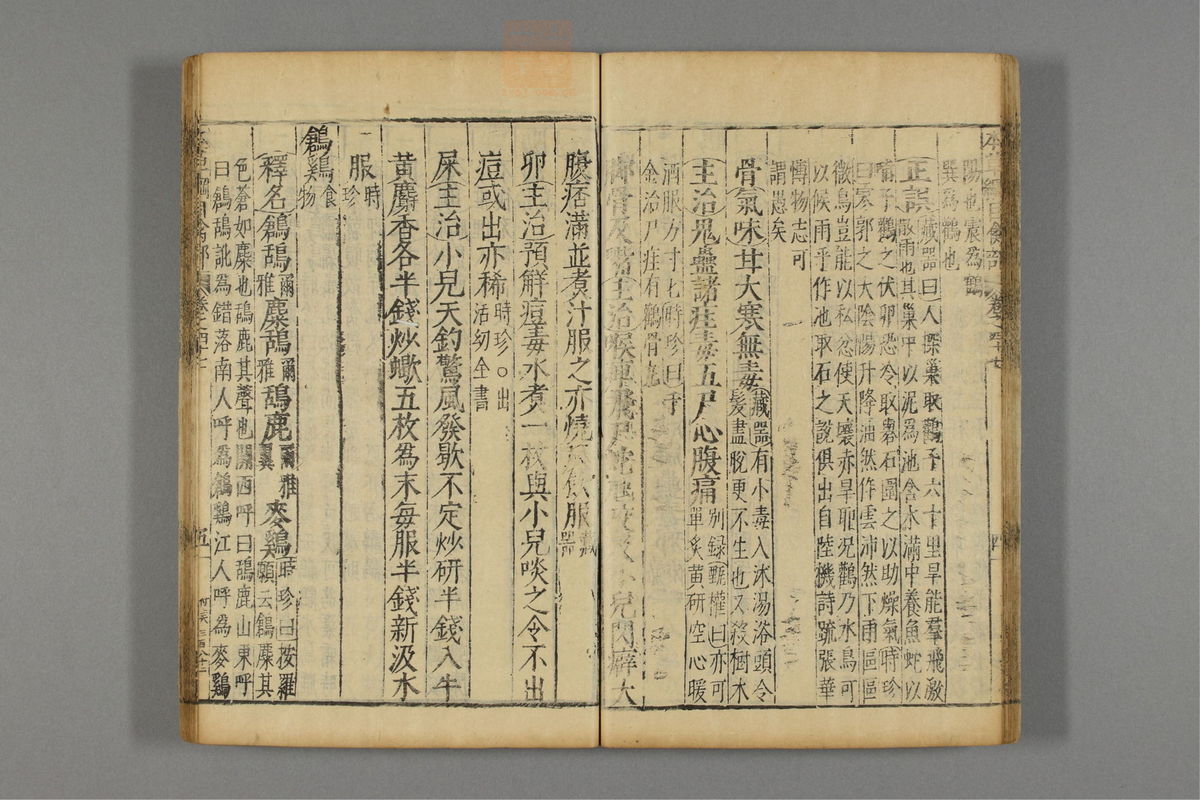 陽也震為鶴
巽為鸛也
正誤藏器曰人探巢取鸛子六十里旱能羣飛激
散雨也其巢中以泥為池含水滿中養魚蛇以
哺子鸛之伏卵恐冷取礜石圍之以助燥氣時珍
曰寇郭之大陰陽升降油然作雲沛然下雨區區
微鳥豈能以私忿使天壤赤旱耶况鸛乃水鳥可
以候雨乎作池取石之說俱出自陸機詩疏張華
博物志可
謂愚矣
骨氣味甘大寒無毒藏器曰有小毒入沐湯浴頭令
髮盡脫更不生也又殺樹木
主治鬼蠱諸疰毒五尸心腹痛別錄甄權曰亦可
單炙黃研空心暖
酒服方寸匕時珍曰千
金治尸疰有鸛骨
脚骨及嘴主治喉痺飛尸蛇 小兒閃癖大
腹痞滿並煮汁服之亦燒 飲服藏
器
卵主治預解痘毒水煮一枚與小兒啖之令不出
痘或出亦稀時珍○出
活幼全書
屎主治小兒天釣驚風發歇不定炒研半錢入牛
黃麝香各半錢炒蠍五枚為末每服半錢新汲水
服時
珍
鶬鷄食
物
釋名鶬鴰爾
雅麋鴰爾
雅鴰鹿爾雅
翼麥鷄時珍曰按羅
願云鶬麋其
色蒼如麋也鴰鹿其聲也關西呼曰鴰鹿山東呼
曰鶬鴰訛為錯落南人呼為鶬鷄江人呼為麥鷄
五